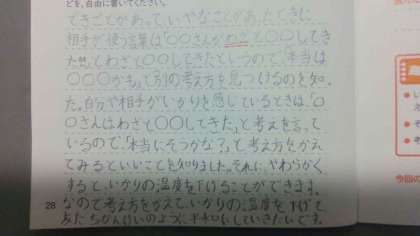 どを、自由に書いてください。
できごとがあって、いやなことがあったときに
相手が使う言葉は「〇〇さんがわざと〇〇してき
た」と。してわざと〇〇してきたといつので、「本当は
〇〇〇かも。」て別の考え方を見つけるのを知っ
た。自分や相手がいかりを感じているときは、「〇
〇さんはわざと〇〇してきた」と考えを言って
いるので、「本当にそうかな?」と考え方をかえて
てみるといいことを知りました。それに、やわらかく
すると、いかりの温度を下げることができます。
なので考え方をかえて、いかりの温度を下げて
友だちかんけいのように平和にしていきたいです。
28
今回の